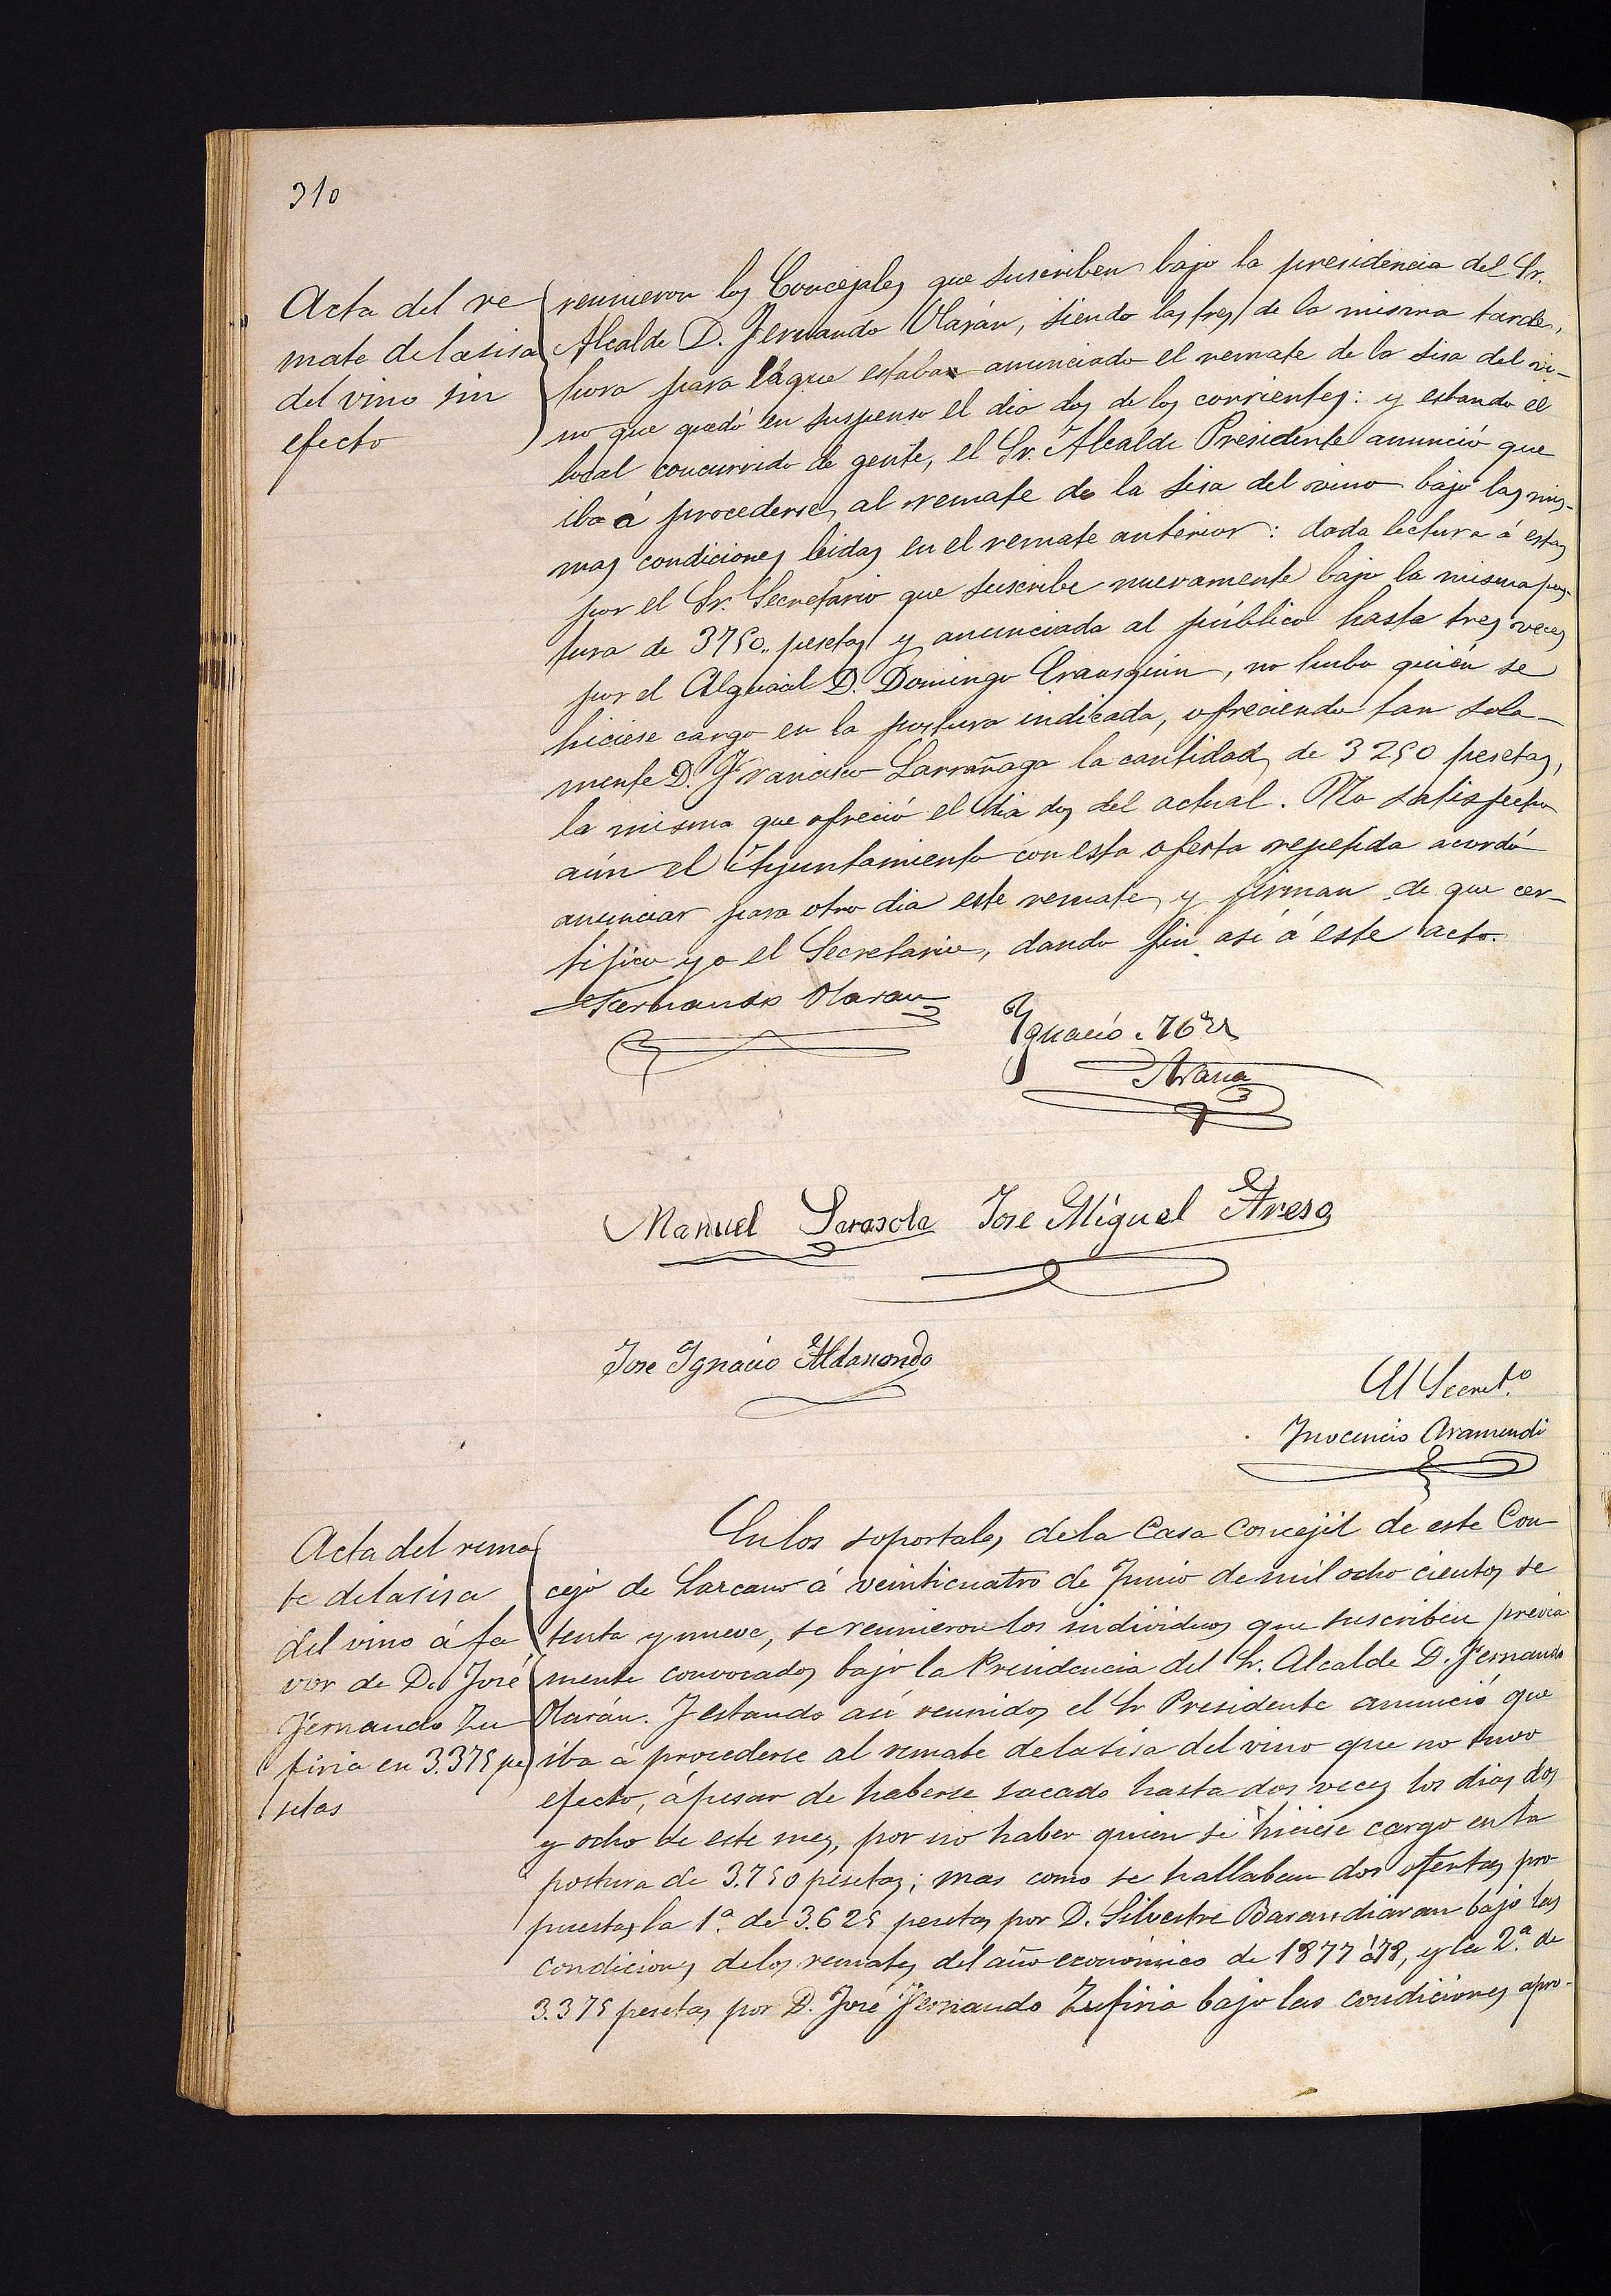 310
Acta del re
mate de la sisa
del vino sin
efecto
reunieron los Concejales que suscriben bajo la presidencia del Sr.
Alcalde D. Fernando Olarán, siendo las tres de la misma tarde,
hora para la que estaba anunciado el remate de la sisa del vi-
no que quedó en suspenso el dia dos de los corrientes: y estando el
local concurrido de gente, el Sr. Alcalde Presidente anunció que
iba á procederse al remate de la sisa del vino bajo las mis-
mas condiciones leidas en el remate anterior: dada lectura á estas
por el Sr. Secretario que suscribe nuevamente bajo la misma pos-
tura de 3750,, pesetas y anunciada al público hasta tres veces
por el Alguacil D. Domingo Erausquin, no hubo quién se
hiciese cargo en la postura indicada, ofreciendo tan sola-
mente D. Francisco Larrañaga la cantidad de 3250 pesetas,
la misma que ofreció el dia dos del actual. No satisfecho
aún el Ayuntamiento con esta oferta repetida acordó
anunciar para otro dia este remate, y firman de que cer-
tifico yo el Secretario, dando fin así á este acto.
Fernando Olaran
Ygnacio
Arana
Manuel Sarasola Jose Miguel Areso
Jose Ignacio Aldasondo
El Secret.o
Inocencio Aramendi
Acta del rema
te de la sisa
del vino á fa
vor de D. José
Fernando Zu
firia en 3.375 pe
setas
En los soportales de la Casa Concejil de este Con
cejo de Lazcano á veinticuatro de Junio de mil ocho cientos se
tenta y nueve, se reunieron los individuos que suscriben previa
mente convocados bajo la Presidencia del Sr. Alcalde D. Fernando
Olarán. Y estando asi reunidos el Sr Presidente anunció que
iba á procederse al remate de la sisa del vino que no tuvo
efecto, ápesar de haberse sacado hasta dos veces los dias dos
y ocho de este mes, por no haber quien se hiciese cargo en la
postura de 3.750 pesetas; mas como se hallaban dos ofertas pro
puestas, la 1.a de 3.625 pesetas por D. Silvestre Barandiaran bajo las
condiciones de los remates del año económico de 1877 á 78, y la 2.a de
3.375 pesetas por D. José Fernando Zufiria bajo las condiciones apro-